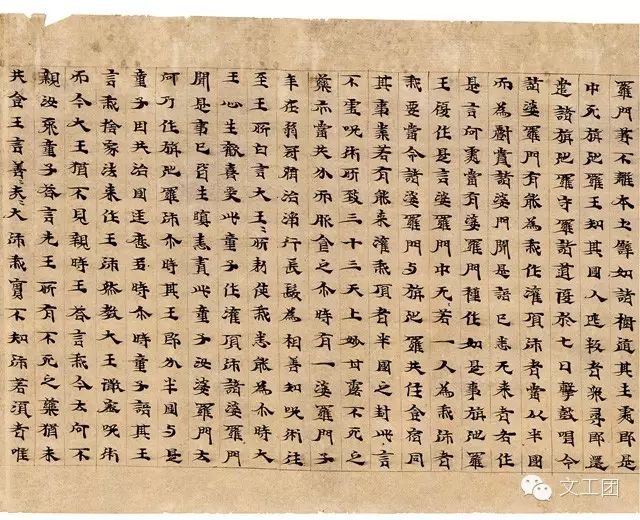 羅門等不離本土譬如諸樹隨其生處即是
中死旃陀羅王知其國人逃叛者眾尋即還
遣諸旃陀羅守邏諸道復於七日擊鼓唱令
諸婆羅門有能為我作灌頂師者當以半國
而為封賞諸婆羅門聞是語已悉无來者各作
是言何處當有婆羅門種作如是事旃陀羅
王復作是言婆羅門中无若一人為我師者
我要當令諸婆羅門与旃陀羅共住食宿同
其事業若有能來灌我頂者半國之封此言
不虛呪術所致三十三天上妙甘露不死之
藥亦當共分而服食之尒時有一婆羅門子
年在弱冠脩治淨行長髮為相善知呪術往
至王所白言大王〻所勑使我悉能為尒時大
王心生歡喜受此童子作灌頂師諸婆羅門
聞是事已皆生瞋恚責此童子汝婆羅門云
何乃作旃陀羅師尒時其王即分半國与是
童子因共治國逕歷多時尒時童子語其王
言我捨家法來作王師然教大王微密呪術
而今大王猶不見親時王答言我今云何不
親汝耶童子答言先王所有不死之藥猶未
共食王言善哉〻大師我實不知師若須者唯
文工团